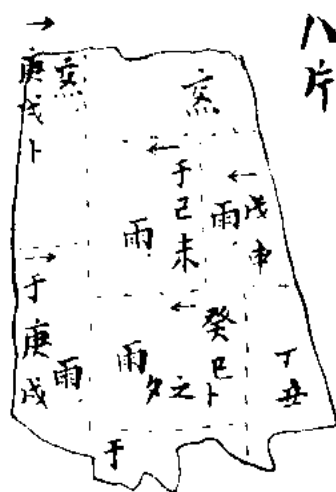 八片
→
庚戌卜
烄
烄
←
于己未
雨
←
戊申
雨
→
于庚戌
雨
←
癸巳卜
之夕
雨
丁丑
于